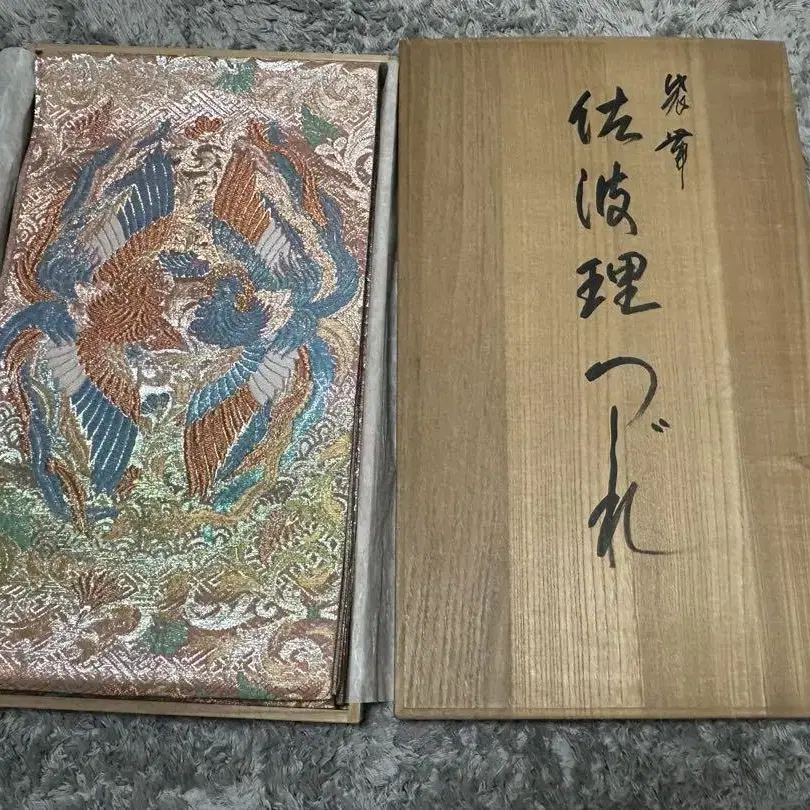 袋帯
佐波理つゞれ